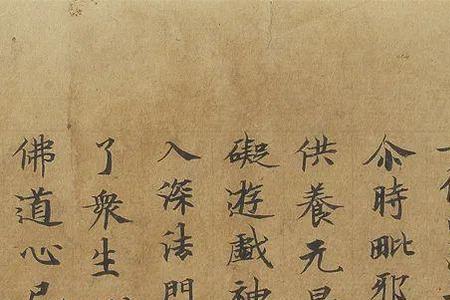 尒時毗耶
供養无
礙遊戲神
入深法門
了衆生
佛道心